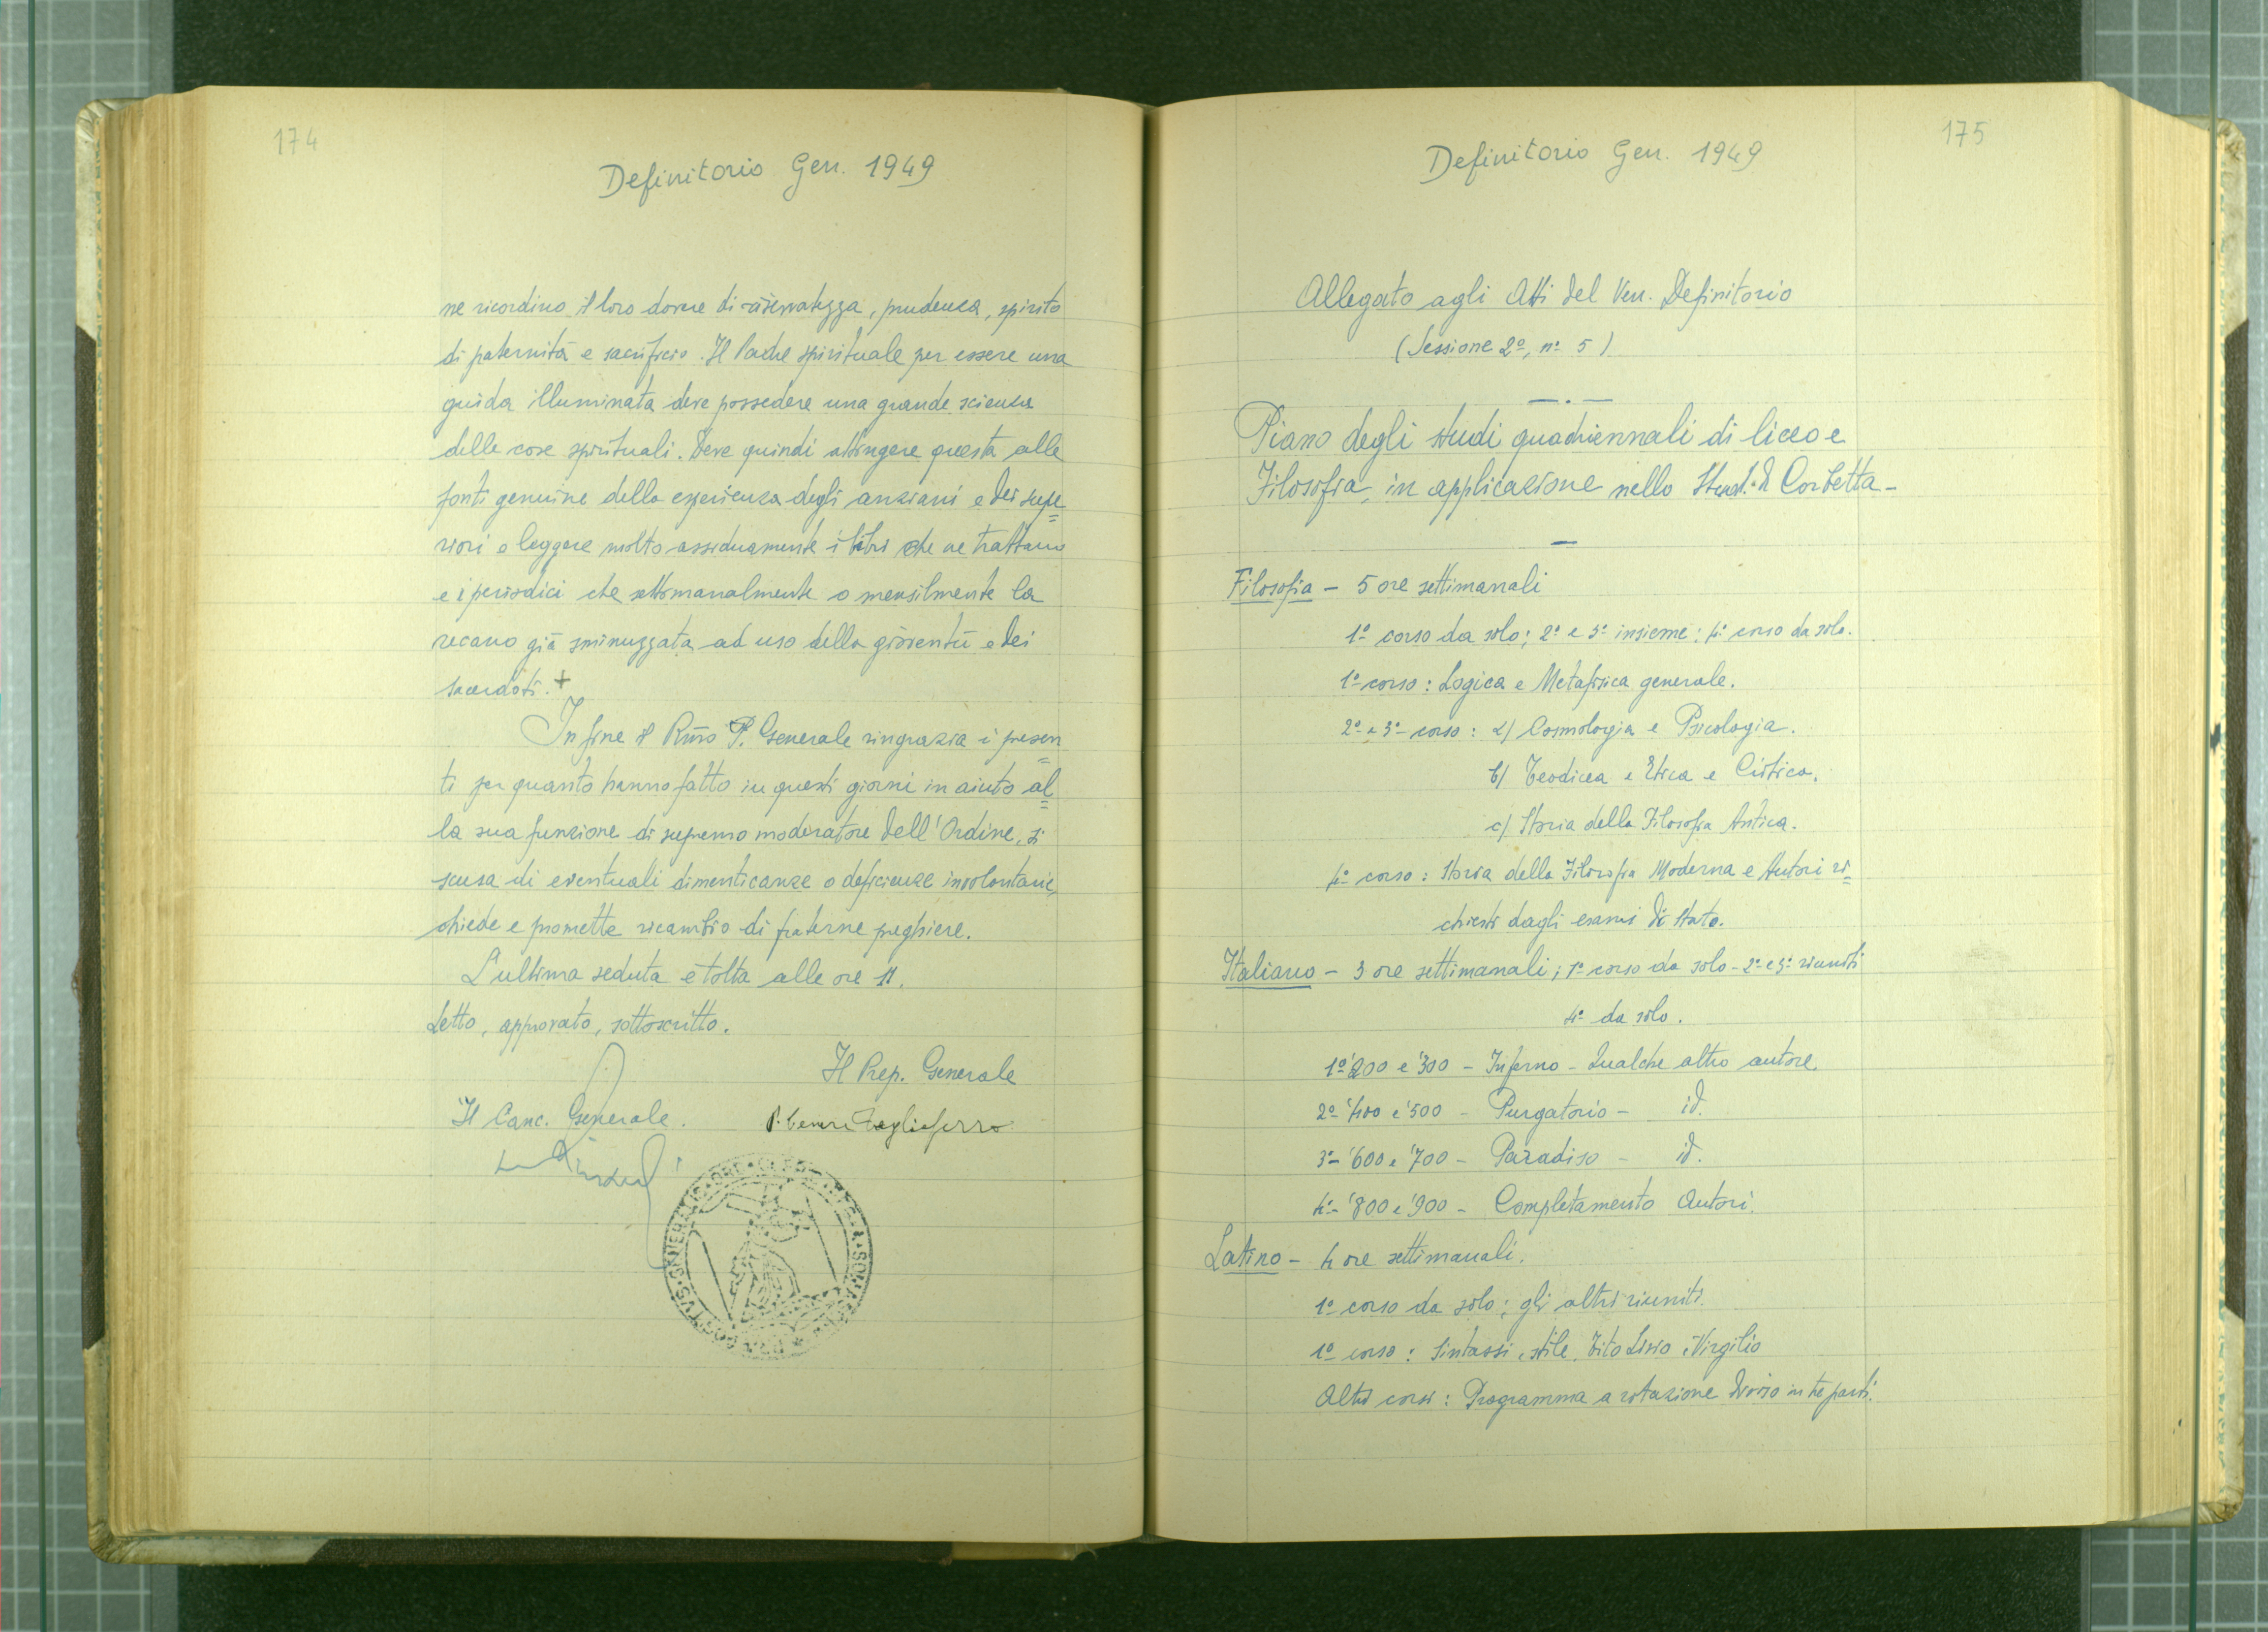 174
Definitorio Gen. 1949
ne ricordino il loro dovere di riservatezza, prudenza, spirito
di paternità e sacrificio. Il Padre spirituale per essere una
guida illuminata deve possedere una grande scienza
delle cose spirituali. Deve quindi attingere questa alle
fonti genuine della esperienza degli anziani e dei supe=
riori e leggere molto assiduamente i libri che ne trattano
e i periodici che settimanalmente o mensilmente la
recano già sminuzzata ad uso della gioventù e dei
sacerdoti. +
Infine il Rmo P. Generale ringrazia i presen=
ti per quanto hanno fatto in questi giorni in aiuto al=
la sua funzione di supremo moderatore dell'Ordine, si
scusa di eventuali dimenticanze o deficienze involontarie,
chiede e promette ricambio di fraterne preghiere.
L'ultima seduta è tolta alle ore 11.
Letto, approvato, sottoscritto.
Il Prep. Generale
Il Canc. Generale.
P. Cesare Tagliaferro
175
Definitorio Gen. 1949
Allegato agli Atti del Ven. Definitorio
(Sessione 2ª, nº 5)
Piano degli studi quadriennali di liceo e
Filosofia, in applicazione nello Stud. di Corbetta -
Filosofia - 5 ore settimanali
1º corso da solo; 2º e 3º insieme; 4º corso da solo.
1º corso: Logica e Metafisica generale.
2º e 3º corso: a) Cosmologia e Psicologia.
b) Teodicea e Etica e Critica.
c) Storia della Filosofia Antica.
4º corso: Storia della Filosofia Moderna e Autori ri=
chiesti dagli esami di Stato.
Italiano - 3 ore settimanali; 1º corso da solo - 2º e 3º riuniti
4º da solo.
1º '200 e '300 - Inferno - Qualche altro autore.
2º '400 e '500 - Purgatorio - id.
3º - '600 e '700 - Paradiso - id.
4º - '800 e '900 - Completamento Autori.
Latino - 4 ore settimanali.
1º corso da solo; gli altri riuniti.
1º corso: Sintassi, stile, Tito Livio, Virgilio
Altri corsi: Programma a rotazione diviso in tre parti.